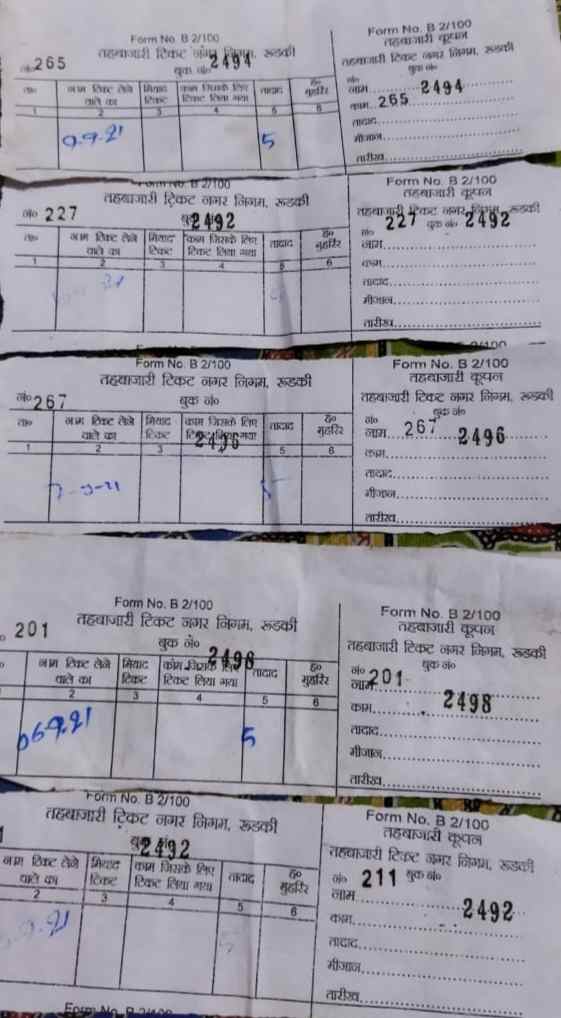 Form No. B 2/100
तहबाजारी टिकट नगर निगम, रुडकी
नं० 265 बुक नं० 2494
ता० नाम टिकट लेने वाले का मियाद टिकट काम जिसके लिए टिकट लिया गया तादाद ह० मुहर्रिर
1 2 3 4 5 6
9.9.21 5
Form No. B 2/100
तहबाजारी कूपन
तहबाजारी टिकट नगर निगम, रुडकी
बुक नं०
नं०
नाम 2494
काम 265
तादाद
मीजान
तारीख
Form No. B 2/100
तहबाजारी टिकट नगर निगम, रुडकी
नं० 227 बुक नं० 2492
ता० नाम टिकट लेने वाले का मियाद टिकट काम जिसके लिए टिकट लिया गया तादाद ह० मुहर्रिर
1 2 3 4 5 6
Form No. B 2/100
तहबाजारी कूपन
तहबाजारी टिकट नगर निगम, रुडकी
नं० 227 बुक नं० 2492
नाम
काम
तादाद
मीजान
तारीख
Form No. B 2/100
तहबाजारी टिकट नगर निगम, रुडकी
नं० 267 बुक नं०
2496
ता० नाम टिकट लेने वाले का मियाद टिकट काम जिसके लिए टिकट लिया गया तादाद ह० मुहर्रिर
1 2 3 5 6
7-9-21 5
Form No. B 2/100
तहबाजारी कूपन
तहबाजारी टिकट नगर निगम, रुडकी
नं० बुक नं०
नाम 267 2496
काम
तादाद
मीजान
तारीख
Form No. B 2/100
तहबाजारी टिकट नगर निगम, रुडकी
201 बुक नं० 2498
नाम टिकट लेने वाले का मियाद टिकट काम जिसके लिए टिकट लिया गया तादाद ह० मुहर्रिर
2 3 4 5 6
06.9.21 5
Form No. B 2/100
तहबाजारी कूपन
तहबाजारी टिकट नगर निगम, रुडकी
नं० 201 बुक नं०
नाम
काम 2498
तादाद
मीजान
तारीख
Form No. B 2/100
तहबाजारी टिकट नगर निगम, रुडकी
बुक नं० 2492
नाम टिकट लेने वाले का मियाद टिकट काम जिसके लिए टिकट लिया गया तादाद ह० मुहर्रिर
2 3 4 5 6
5
Form No. B 2/100
तहबाजारी कूपन
तहबाजारी टिकट नगर निगम, रुडकी
नं० 211 बुक नं०
नाम 2492
काम
तादाद
मीजान
तारीख
Form No. B 2/100